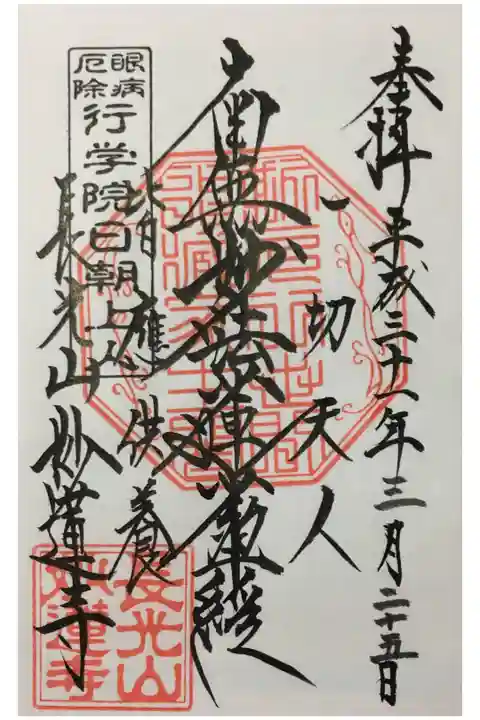 奉拝 平成三十一年三月二十五日
一切天人
南無妙法蓮華経
皆應供養
眼病
厄除
行学院日朝上人
長光山 妙蓮寺
長光山
妙蓮寺